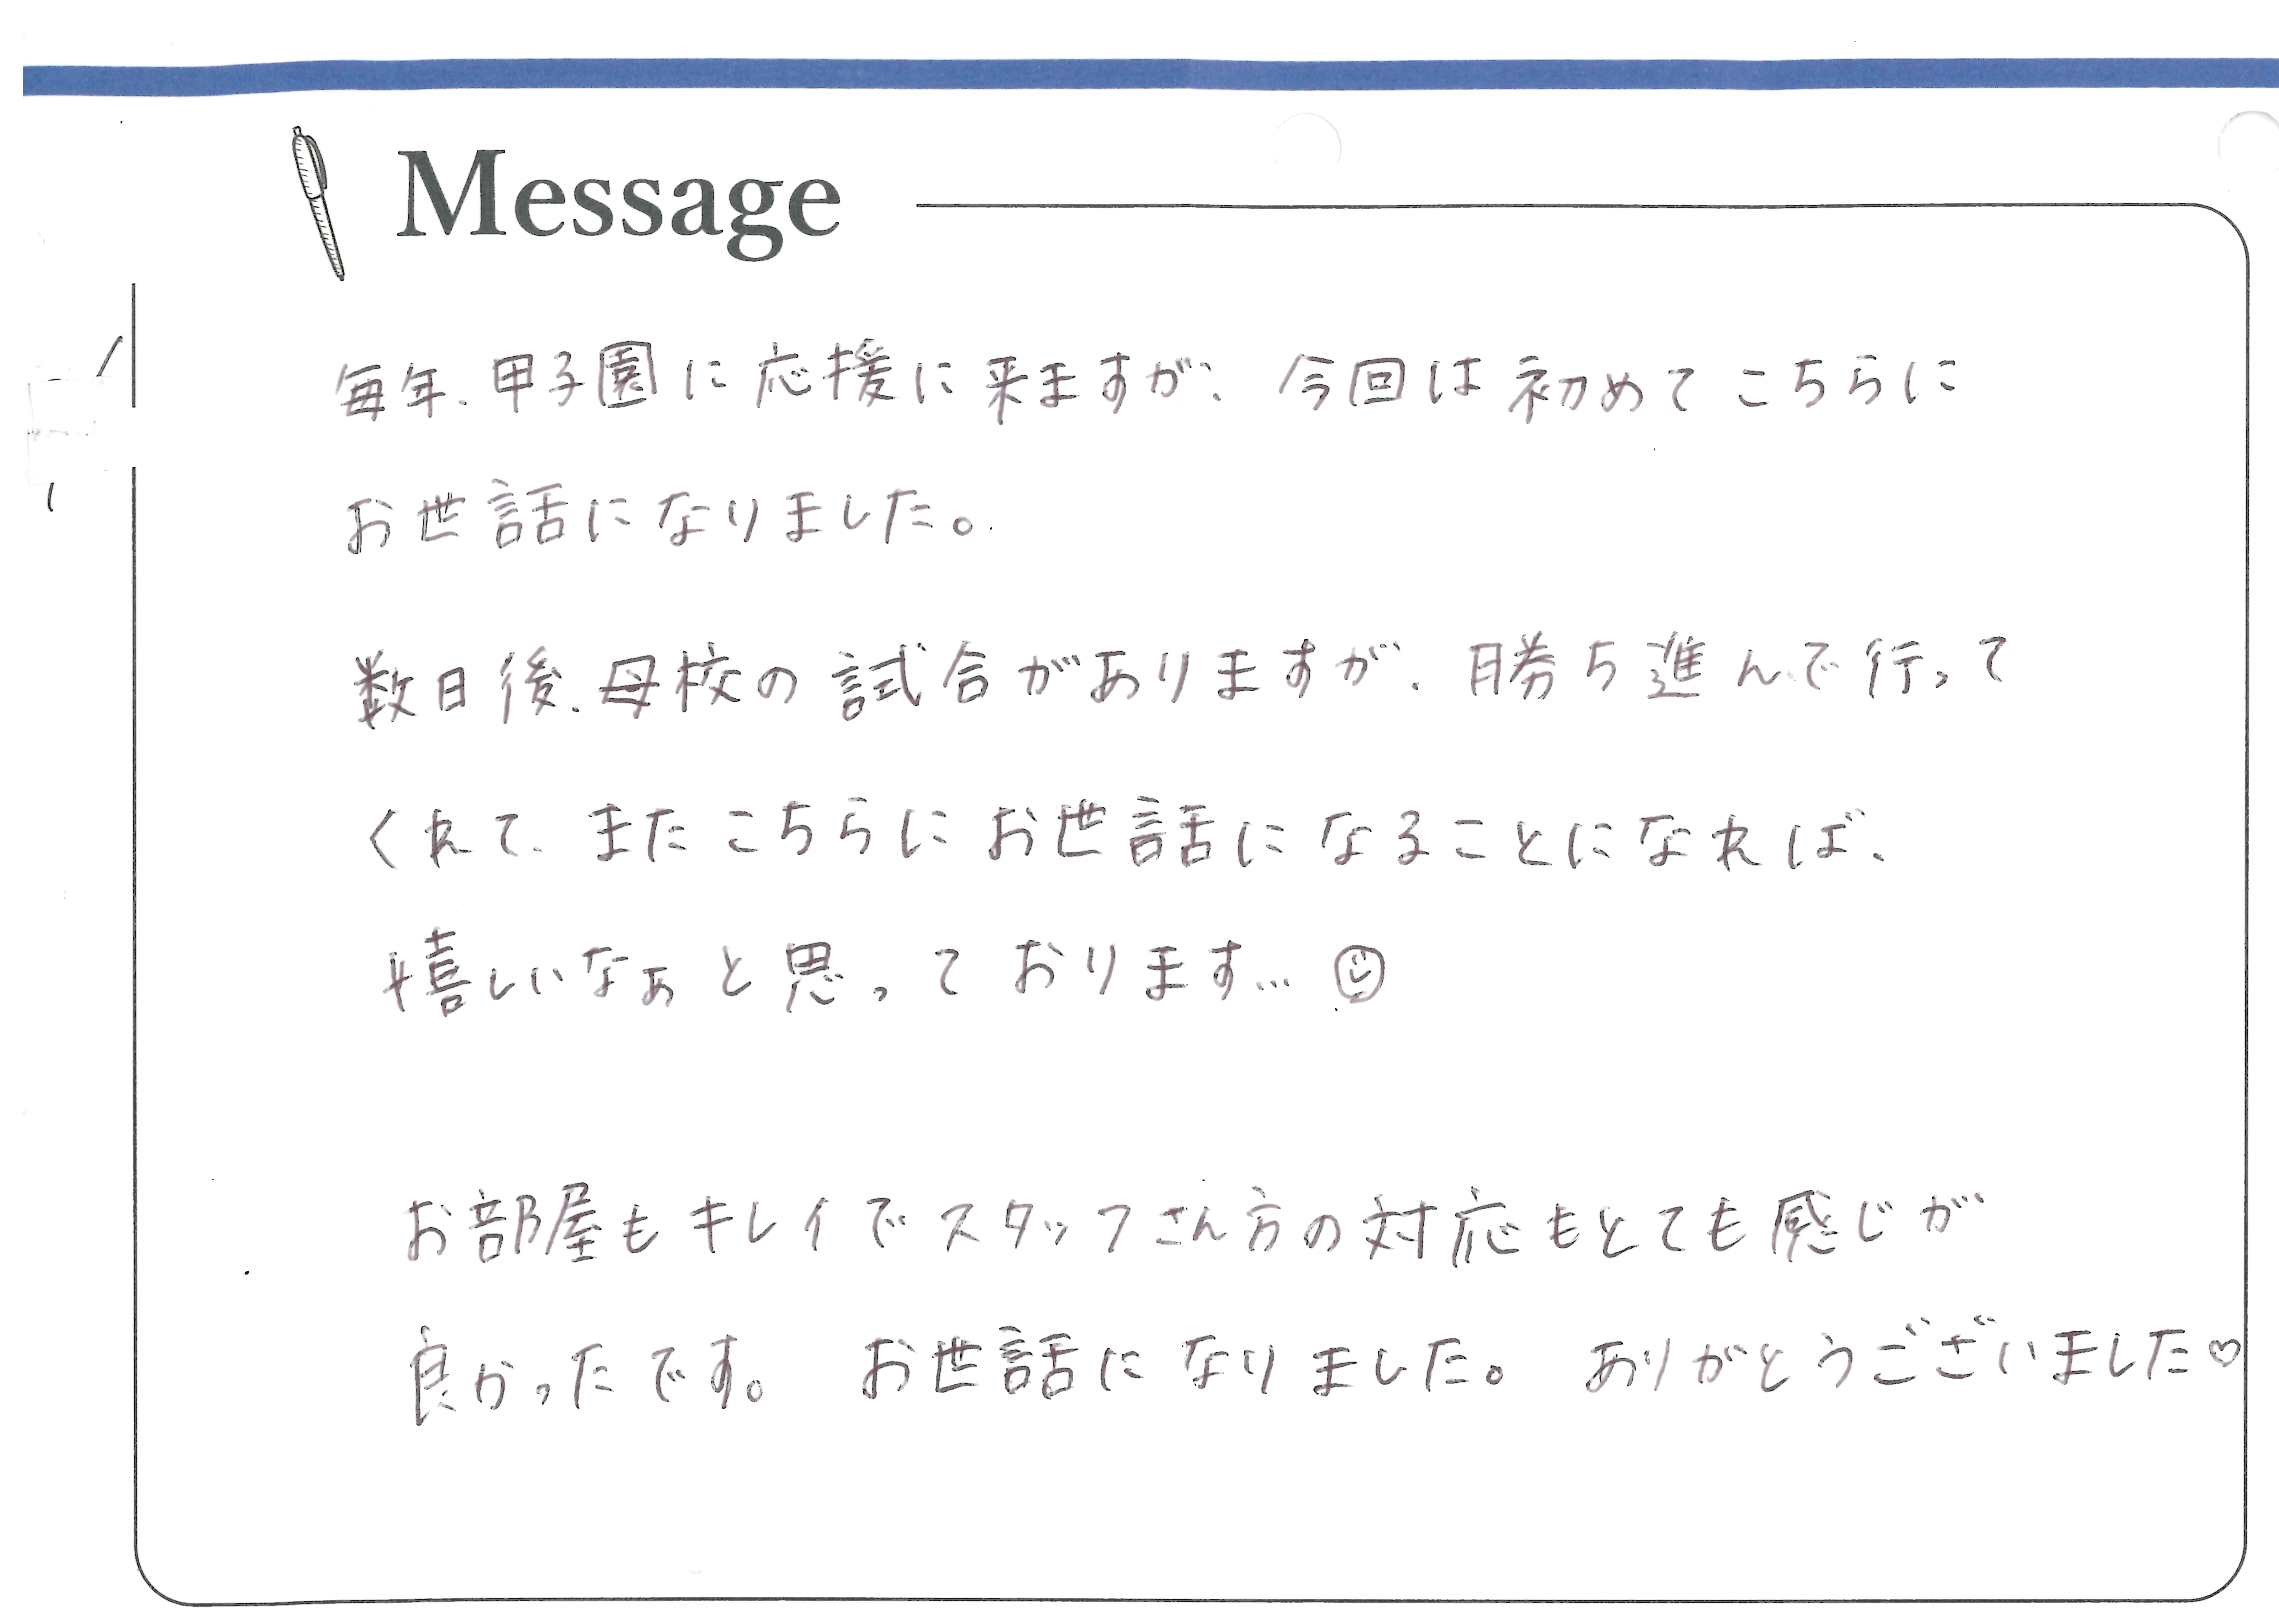 Message
毎年、甲子園に応援に来ますが、今回は初めてこちらに
お世話になりました。
数日後、母校の試合がありますが、勝ち進んで行って
くれて、またこちらにお世話になることになれば、
嬉しいなぁと思っております…☺
お部屋もキレイでスタッフさん方の対応もとても感じが
良かったです。 お世話になりました。 ありがとうございました♡